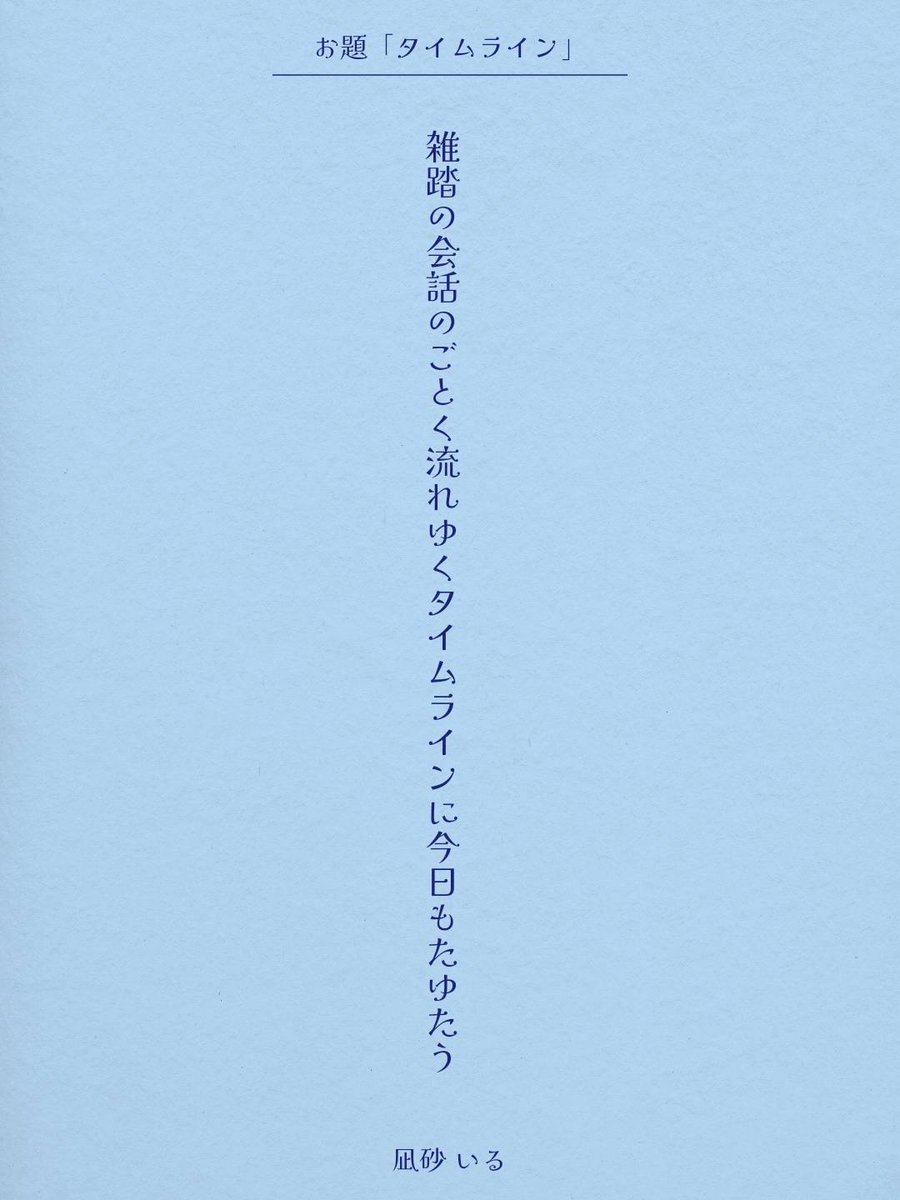 お題「タイムライン」
雑踏の会話のごとく流れゆくタイムラインに今日もたゆたう
凪砂 いる